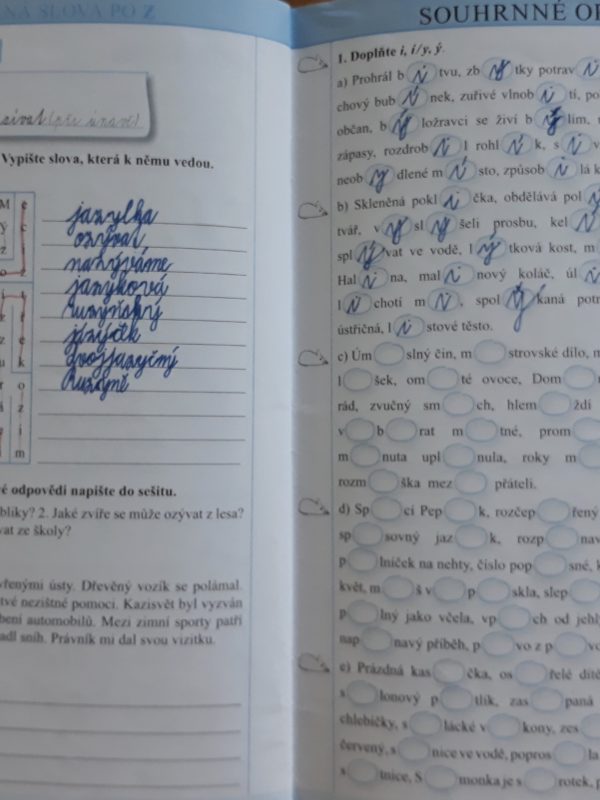 NÁ SLOVA PO Z
(při únavě)
Vypište slova, která k němu vedou.
jazylka
ozýval
nazýváme
jazyková
Ruzyňský
jazýček
dvojjazyčný
Ruzyně
é odpovědi napište do sešitu.
bliky? 2. Jaké zvíře se může ozývat z lesa?
vat ze školy?
vřenými ústy. Dřevěný vozík se polámal.
tvé nezištné pomoci. Kazisvět byl vyzván
bení automobilů. Mezi zimní sporty patří
adl sníh. Právník mi dal svou vizitku.
SOUHRNNÉ OP
1. Doplňte i, í/y, ý.
a) Prohrál b i tvu, zb y tky potrav i
chový bub í nek, zuřivé vlnob i tí, po
občan, b ý ložravci se živí b ý lím,
zápasy, rozdrob i l rohl í k, s i v
neob y dlené m í sto, způsob i lá k
b) Skleněná pokl i čka, obdělává pol í
tvář, v y sl y šeli prosbu, kel í
spl ý vat ve vodě, l ý tková kost, m
Hal i na, mal i nový koláč, úl i
l i chotí m i, spol y kaná potr
ústřičná, l i stové těsto.
c) Úm slný čin, m strovské dílo, m
l šek, om té ovoce, Dom
rád, zvučný sm ch, hlem ždí
v b rat m tné, prom
m nuta upl nula, roky m
rozm ška mez přáteli.
d) Sp cí Pep k, rozčep řený
sp sovný jaz k, rozp nav
p lníček na nehty, číslo pop sné, k
květ, m š v p skla, slep
p lný jako včela, vp ch od jehl
nap navý příběh, p vo z p vo
e) Prázdná kas čka, os řelé dítě
s lonový p tlík, zas paná
chlebíčky, s lácké v kony, zes
červený, s nice ve vodě, popros la
s tnice, S monka je s rotek, p